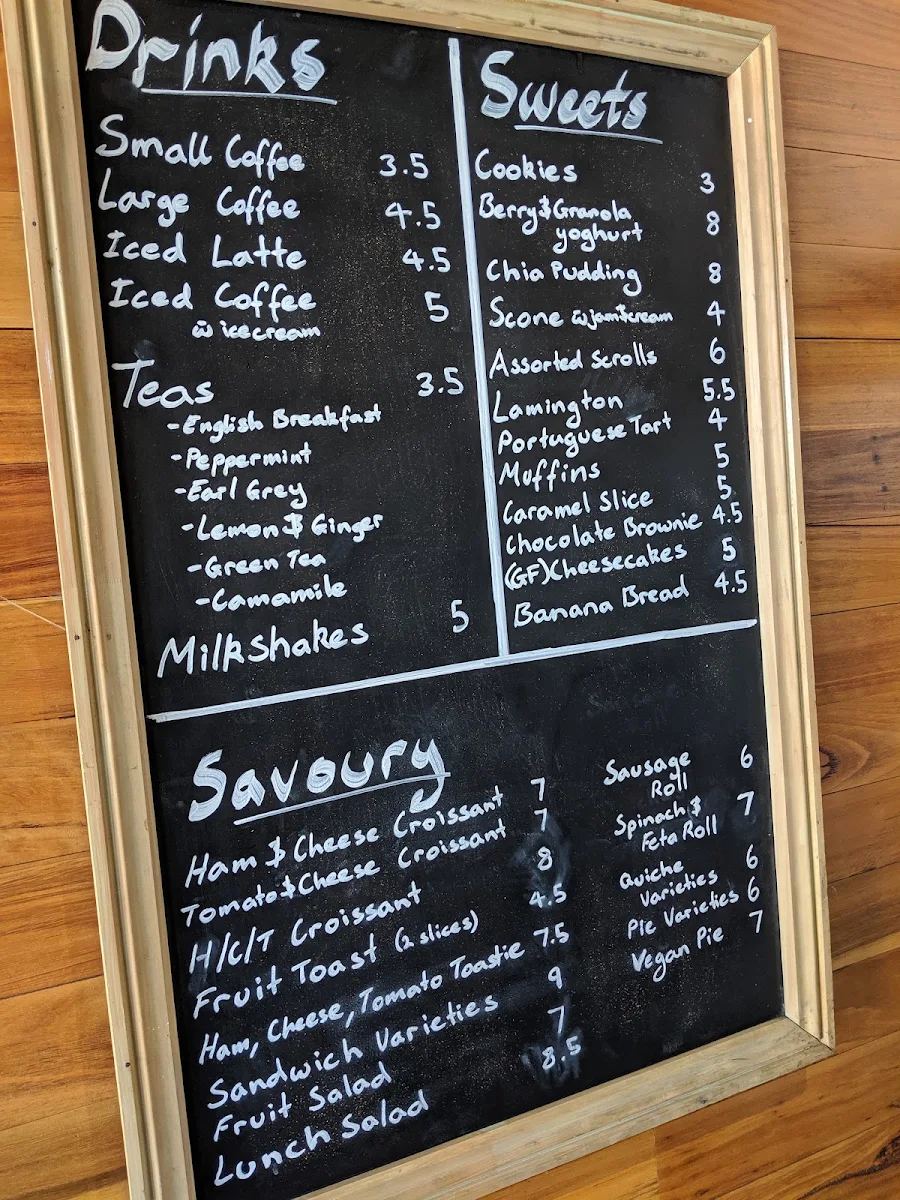 Drinks
Small Coffee 3.5
Large Coffee 4.5
Iced Latte 4.5
Iced Coffee 5
w icecream
Teas 3.5
-English Breakfast
-Peppermint
-Earl Grey
-Lemon & Ginger
-Green Tea
-Camamile
Milkshakes 5
Sweets
Cookies 3
Berry & Granola
yoghurt 8
Chia Pudding 8
Scone w jam & cream 4
Assorted Scrolls 6
Lamington 5.5
Portuguese Tart 4
Muffins 5
Caramel Slice 5
Chocolate Brownie 4.5
(GF)Cheesecakes 5
Banana Bread 4.5
Savoury
Ham & Cheese Croissant 7
Tomato & Cheese Croissant 7
H/C/T Croissant 8
Fruit Toast (2 slices) 4.5
Ham, Cheese, Tomato Toastie 7.5
Sandwich Varieties 9
Fruit Salad 7
Lunch Salad 8.5
Sausage 6
Roll
Spinach & 7
Feta Roll
Quiche
Varieties 6
Pie Varieties 6
Vegan Pie 7